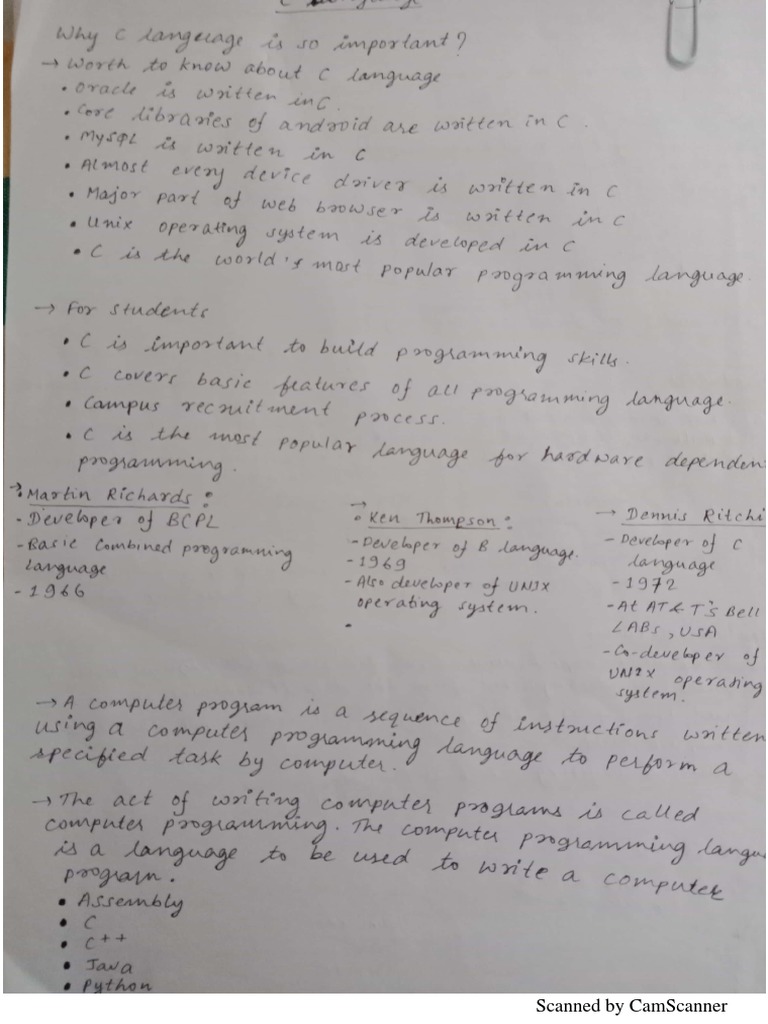 C Language
Why C language is so important?
→ Worth to know about C language
• Oracle is written in C.
• Core libraries of android are written in C.
• MySQL is written in C
• Almost every device driver is written in C
• Major part of web browser is written in C
• Unix operating system is developed in C
• C is the world's most popular programming language.
→ For students
• C is important to build programming skills.
• C covers basic features of all programming language.
• Campus recruitment process.
• C is the most popular language for hardware dependen
programming.
→ Martin Richards :
- Developer of BCPL
- Basic Combined programming
Language
- 1966
→ Ken Thompson :
- Developer of B language.
- 1969
- Also developer of UNIX
operating system.
→ Dennis Ritchi
- Developer of C
language
- 1972
- At AT & T's Bell
LABs, USA
- Co-developer of
UNIX operating
system.
→ A computer program is a sequence of instructions written
using a computer programming language to perform a
specified task by computer.
→ The act of writing computer programs is called
computer programming. The computer programming langu
is a language to be used to write a computer
program.
• Assembly
• C
• C++
• Java
• Python
Scanned by CamScanner